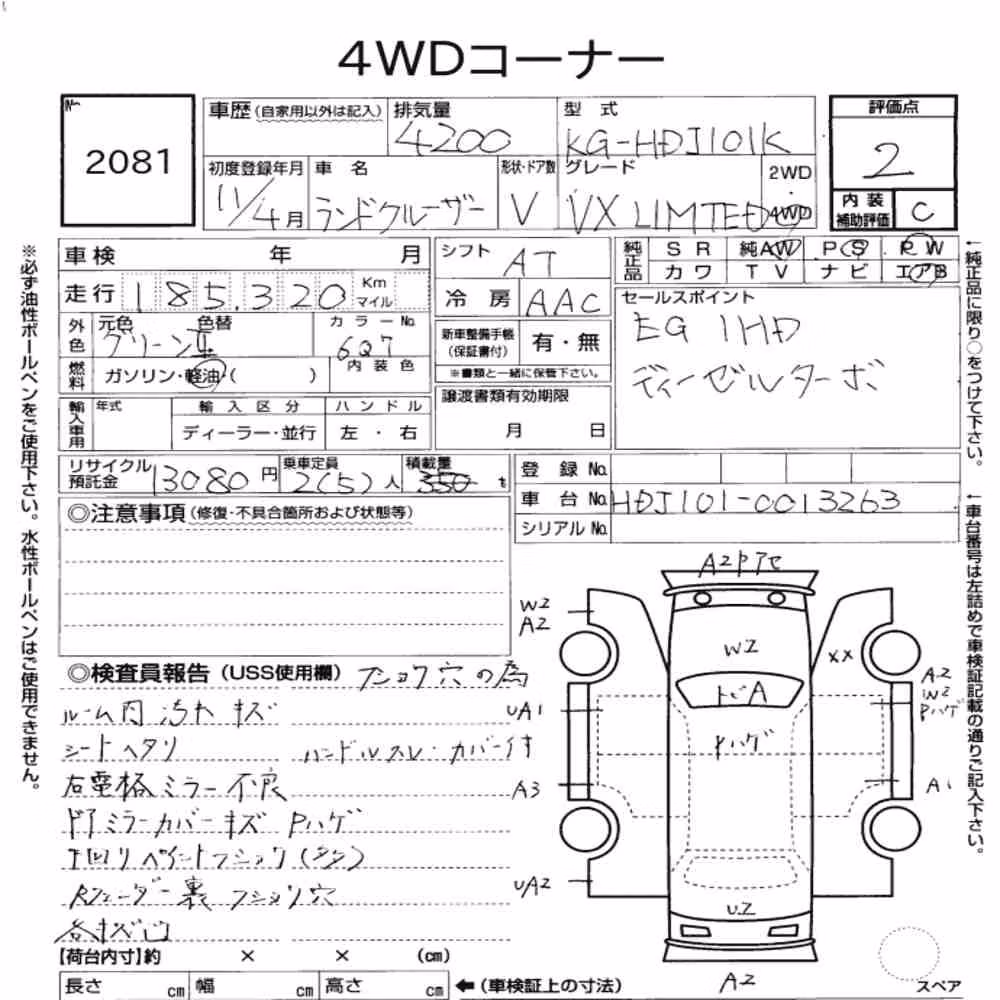 4WDコーナー
No.
2081
車歴 (自家用以外は記入)
排気量
4200
型 式
KG-HDJ101K
評価点
2
初度登録年月
11/4月
車 名
ランドクルーザー
形状・ドア数
V
グレード
VX LIMTED
2WD
・
4WD
内 装
補助評価
C
車検 年 月
シフト
AT
純正品
SR 純AW PS PW
カワ TV ナビ エアB
走行 185,320 Km
マイル
冷 房
AAC
セールスポイント
EG 1HD
ディーゼルターボ
外色
元色 色替
グリーンⅡ
カラーNo.
6Q7
新車整備手帳
(保証書付)
有・無
※書類と一緒に保管下さい。
燃料
ガソリン・軽油・( )
内装色
譲渡書類有効期限
月 日
輸入車用
年式
輸入区分
ディーラー・並行
ハンドル
左・右
リサイクル
預託金
13080 円
乗車定員
2(5)人
積載量
350 t
登 録 No.
車 台 No.
HDJ101-0013263
シリアル No.
◎注意事項 (修復・不具合箇所および状態等)
◎検査員報告 (USS使用欄) フショク穴の為
ルーム内汚れ キズ
シートヘタリ ハンドルスレ・カバー付
右電格ミラー不良
ドアミラーカバーキズ Pハゲ
下回りペイントフショク(タタ)
Rフェーダー裏 フショク穴
各キズ凹
A2Pアセ
W2
A2
W2
XX
トビA
Pハゲ
A2
W2
Pハゲ
UA1
A3
A1
UA2
U2
A2
【荷台内寸】約 × × (cm)
長さ cm
幅 cm
高さ cm
←(車検証上の寸法)
スペア
※必ず油性ボールペンをご使用下さい。水性ボールペンはご使用できません。
←純正品に限り○をつけて下さい。
←車台番号は左詰めで車検証記載の通りご記入下さい。